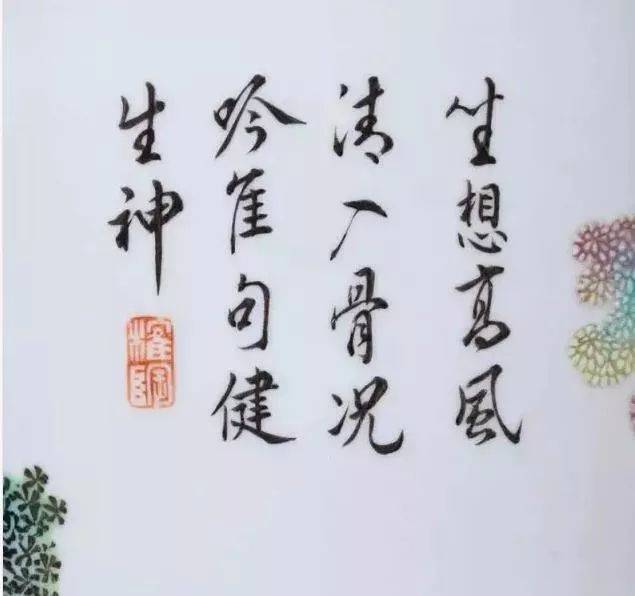 坐想高風
清入骨况
吟佳句健
生神